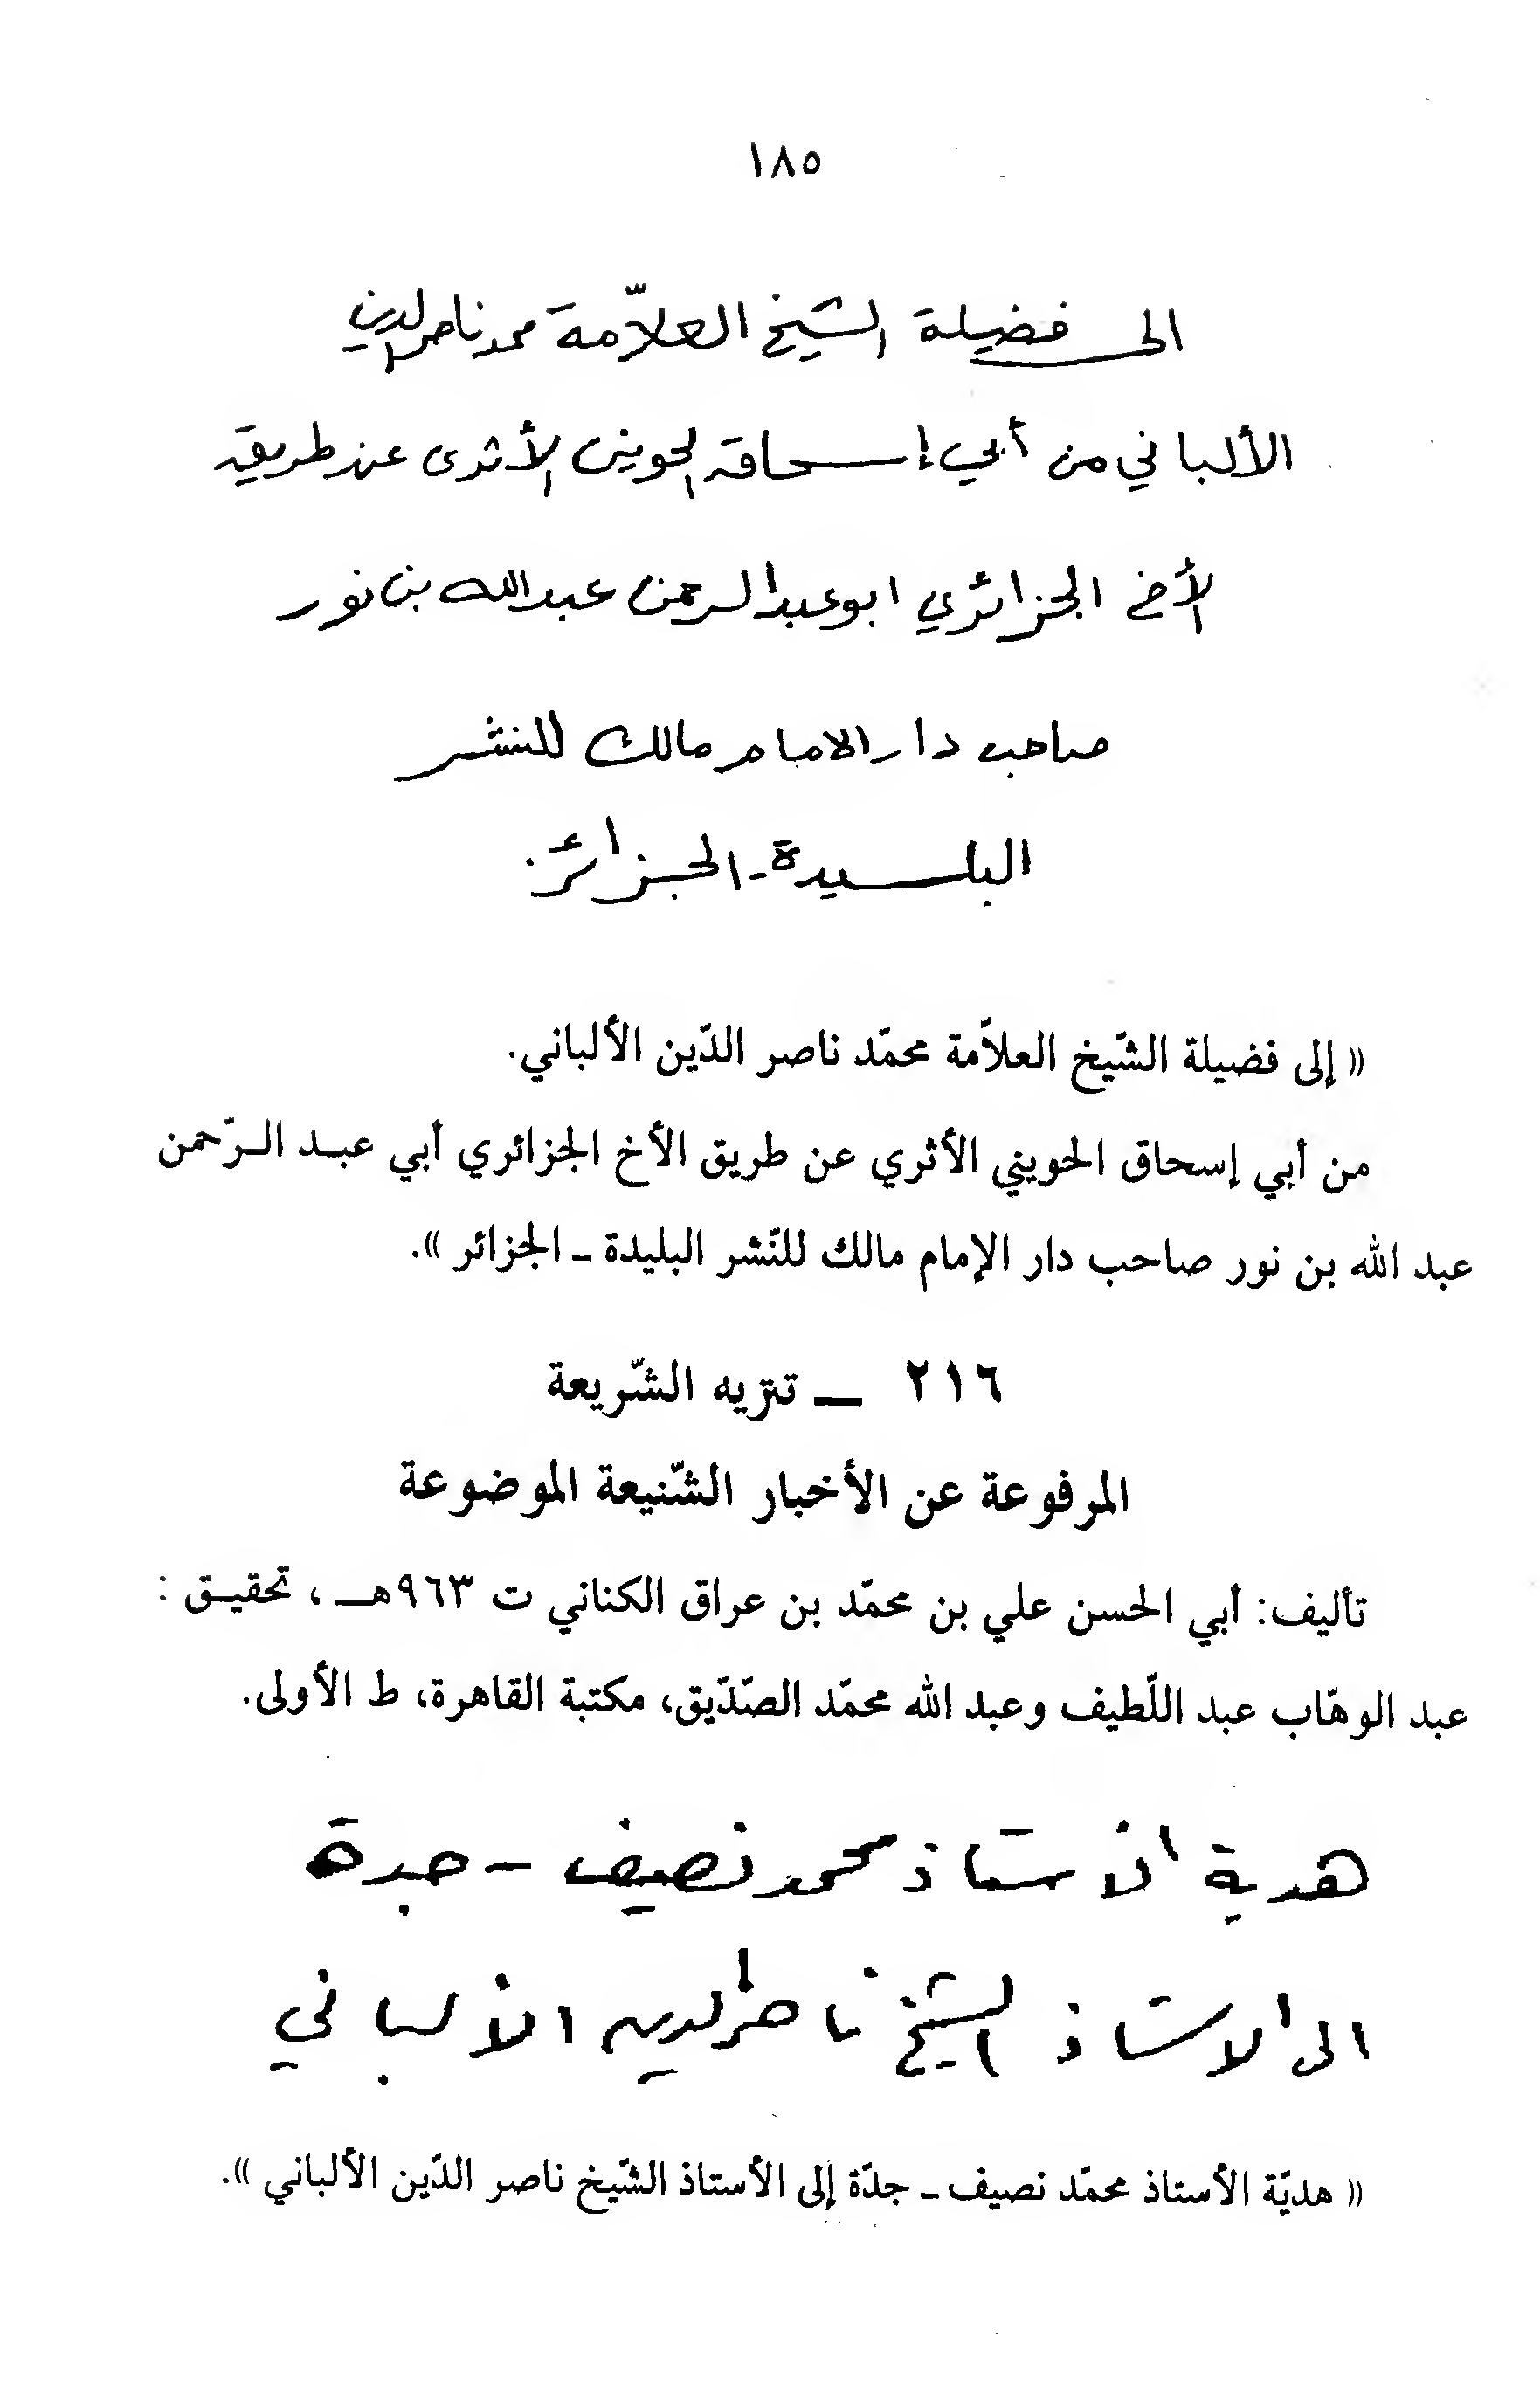 ١٨٥
الى فضيلة الشيخ العلاّمة محمد ناصر الدين
الألباني من أبي إسحاق الحويني الأثرى عن طريق
الأخ الجزائري ابو عبد الرحمن عبدالله بن نور
صاحب دار الامام مالك للنشر
البليدة - الجزائر.
« إلى فضيلة الشّيخ العلاّمة محمّد ناصر الدّين الألباني.
من أبي إسحاق الحويني الأثري عن طريق الأخ الجزائري أبي عبـد الـرّحمن
عبد الله بن نور صاحب دار الإمام مالك للنّشر البليدة ـ الجزائر ».
٢١٦ ـــ تنزيه الشّريعة
المرفوعة عن الأخبار الشّنيعة الموضوعة
تأليف: أبي الحسن علي بن محمّد بن عراق الكناني ت ٩٦٣هـــ ، تحقيـق :
عبد الوهّاب عبد اللّطيف وعبد الله محمّد الصّدّيق، مكتبة القاهرة، ط الأولى.
هدية الأستاذ محمد نصيف - جدة
الى الاستاذ الشيخ ناصر الدين الألباني
« هديّة الأستاذ محمّد نصيف ـ جدّة إلى الأستاذ الشّيخ ناصر الدّين الألباني ».